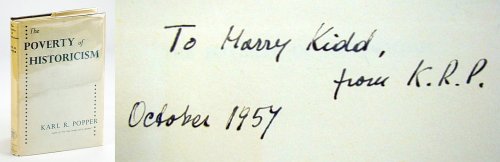 The
POVERTY of
HISTORICISM
KARL R. POPPER
To Harry Kidd,
from K.R.P.
October 1957